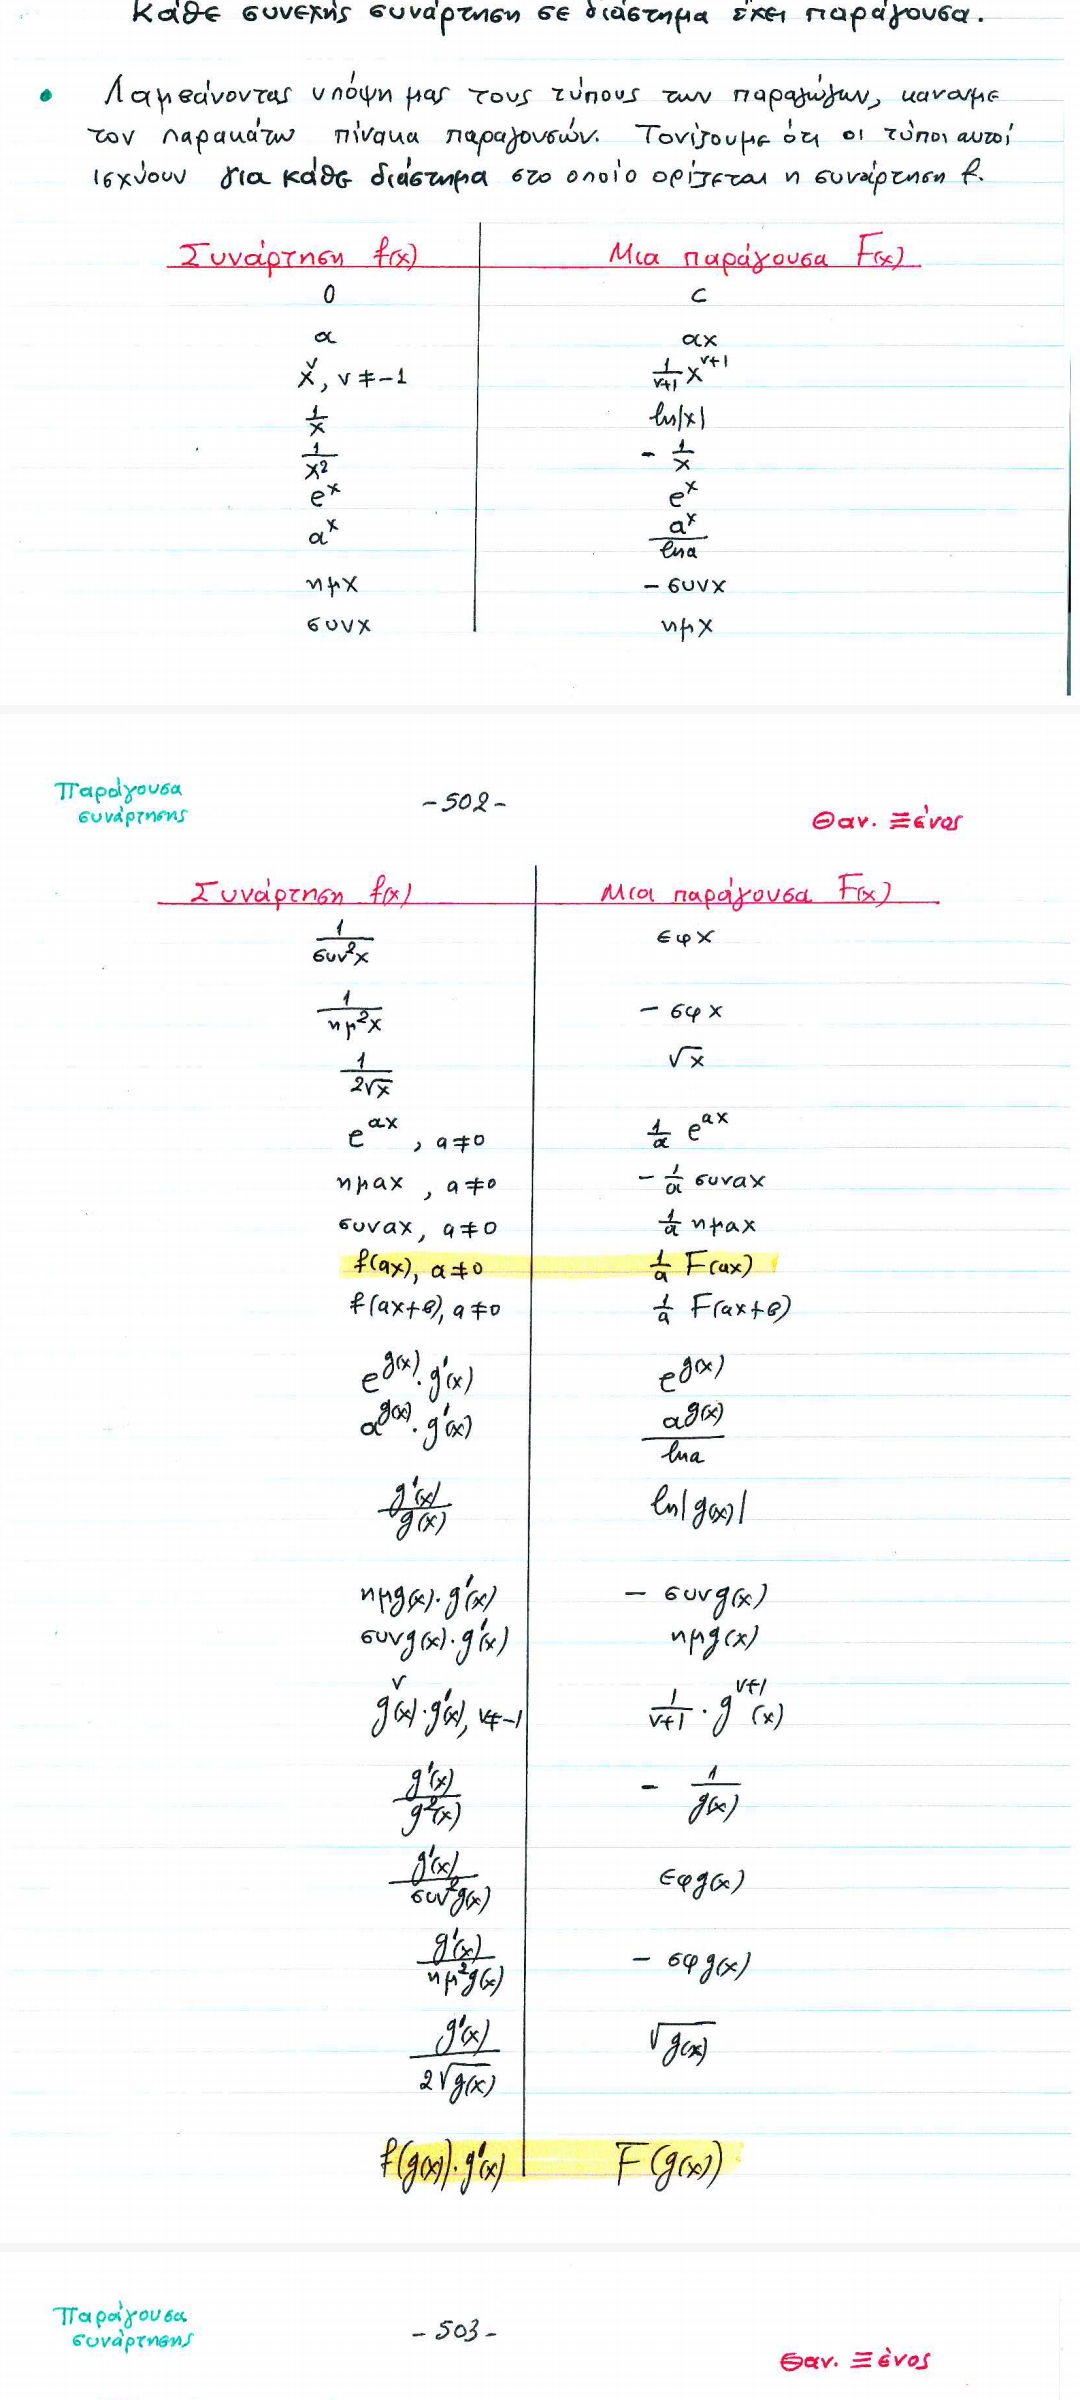 Κάθε συνεχής συνάρτηση σε διάστημα έχει παράγουσα.
• Λαμβάνοντας υπόψη μας τους τύπους των παραγώγων, κάνουμε
τον παρακάτω πίνακα παραγουσών. Τονίζουμε ότι οι τύποι αυτοί
ισχύουν για κάθε διάστημα στο οποίο ορίζεται η συνάρτηση f.
Συνάρτηση f(x) | Μια παράγουσα F(x)
0 | c
α | αx
x^ν, ν≠-1 | 1/(ν+1) x^(ν+1)
1/x | ln|x|
1/x² | -1/x
e^x | e^x
α^x | α^x/lnα
ημx | -συνx
συνx | ημx
Παράγουσα
συνάρτησης
-502-
Θαν. Ξένος
Συνάρτηση f(x) | Μια παράγουσα F(x)
1/συν²x | εφx
1/ημ²x | -σφx
1/(2√x) | √x
e^(αx), α≠0 | 1/α e^(αx)
ημαx, α≠0 | -1/α συναx
συναx, α≠0 | 1/α ημαx
f(αx), α≠0 | 1/α F(αx)
f(αx+β), α≠0 | 1/α F(αx+β)
e^g(x)·g'(x) | e^g(x)
α^g(x)·g'(x) | α^g(x)/lnα
g'(x)/g(x) | ln|g(x)|
ημg(x)·g'(x) | -συνg(x)
συνg(x)·g'(x) | ημg(x)
g^ν(x)·g'(x), ν≠-1 | 1/(ν+1)·g^(ν+1)(x)
g'(x)/g²(x) | -1/g(x)
g'(x)/συν²g(x) | εφg(x)
g'(x)/ημ²g(x) | -σφg(x)
g'(x)/(2√g(x)) | √g(x)
f(g(x))·g'(x) | F(g(x))
Παράγουσα
συνάρτησης
-503-
Θαν. Ξένος